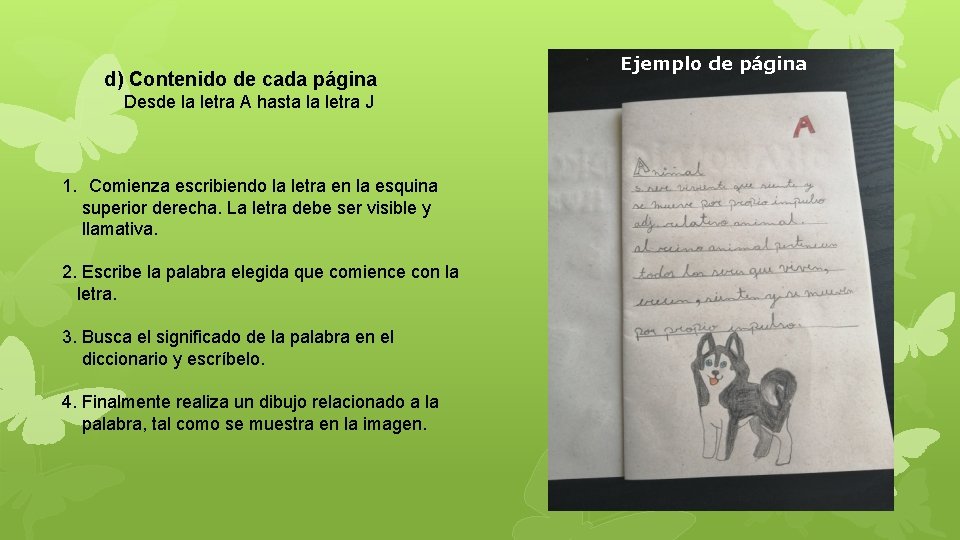 d) Contenido de cada página
Desde la letra A hasta la letra J
1. Comienza escribiendo la letra en la esquina
superior derecha. La letra debe ser visible y
llamativa.
2. Escribe la palabra elegida que comience con la
letra.
3. Busca el significado de la palabra en el
diccionario y escríbelo.
4. Finalmente realiza un dibujo relacionado a la
palabra, tal como se muestra en la imagen.
Ejemplo de página
A
Animal
viviente que siente y
se mueve por propio impulso
adj. relativo animal.
al reino animal pertenecen
todos los seres que viven,
crecen, sienten y se mueven
por propio impulso.